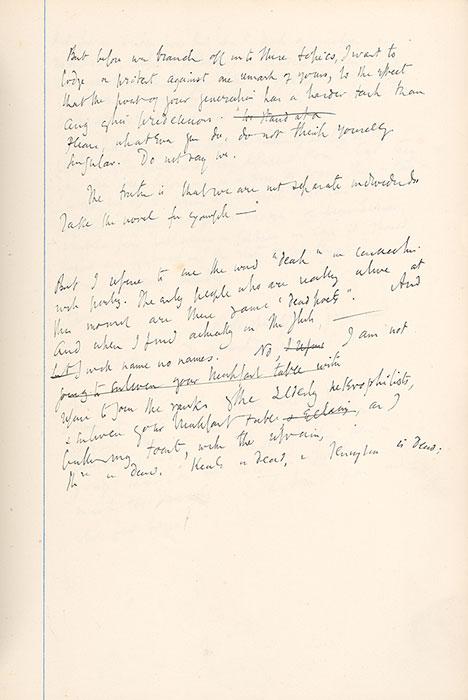 But before we branch off into these topics, I want to
lodge a protest against one remark of yours, to the effect
that the poet of your generation has a harder task than
any
Please, whatever you do, do not think yourself
singular. Do not say we.
The truth is that we are not separate individuals
Take the novel for example —
But I refuse to use the word "death" in connection
with poetry. The only people who are really alive at
this moment are these same "dead poets". And
and when I find actually in the flesh, —
but I will name no names. No, I refuse I am not
going to enliven your breakfast table with
to join the ranks of the elderly necrophilists,
& enliven your breakfast table, as I
toast, with the refrain,
is dead. Keats is dead, & Tennyson is dead: